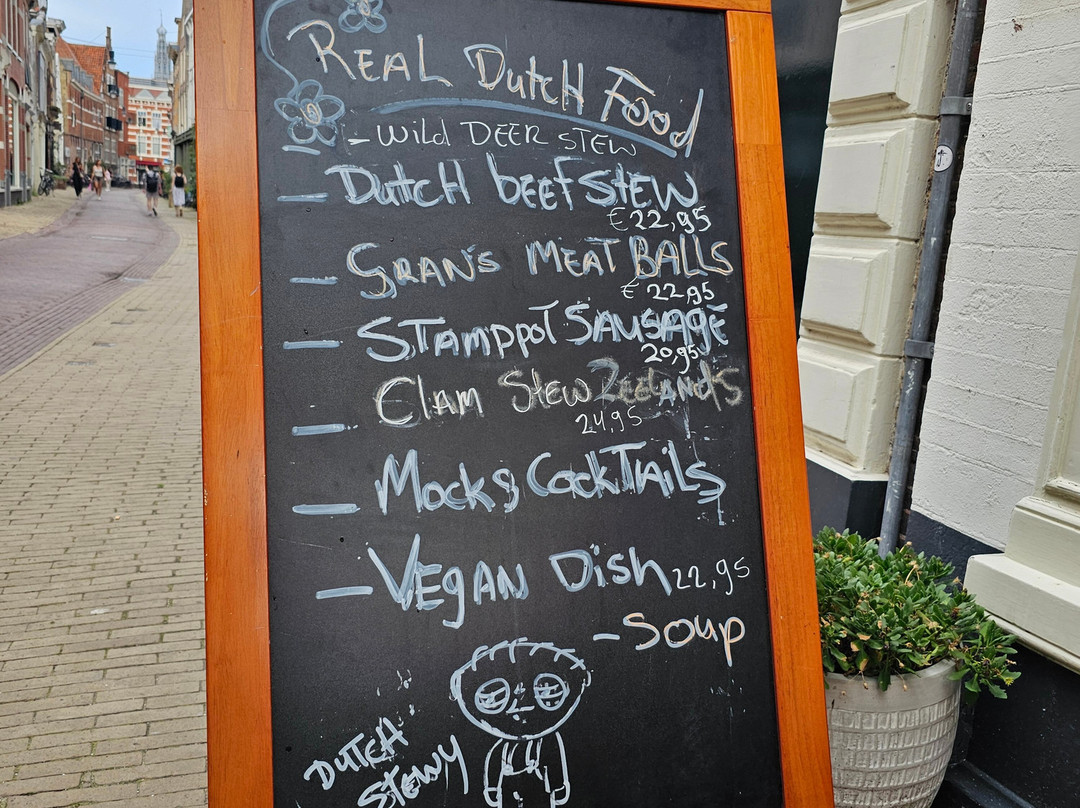 REAL DutcH Food
- wild DEER STEW
- DutcH beef STEW
€22,95
- GRAN's MEAT BALLS
€ 22,95
- STAMPPOT SAUSAGE
20,95
- Clam Stew Zeelands
24,95
- Mocks CockTails
- VEGAN Dish 22,95
- Soup
DUTCH
STEWY